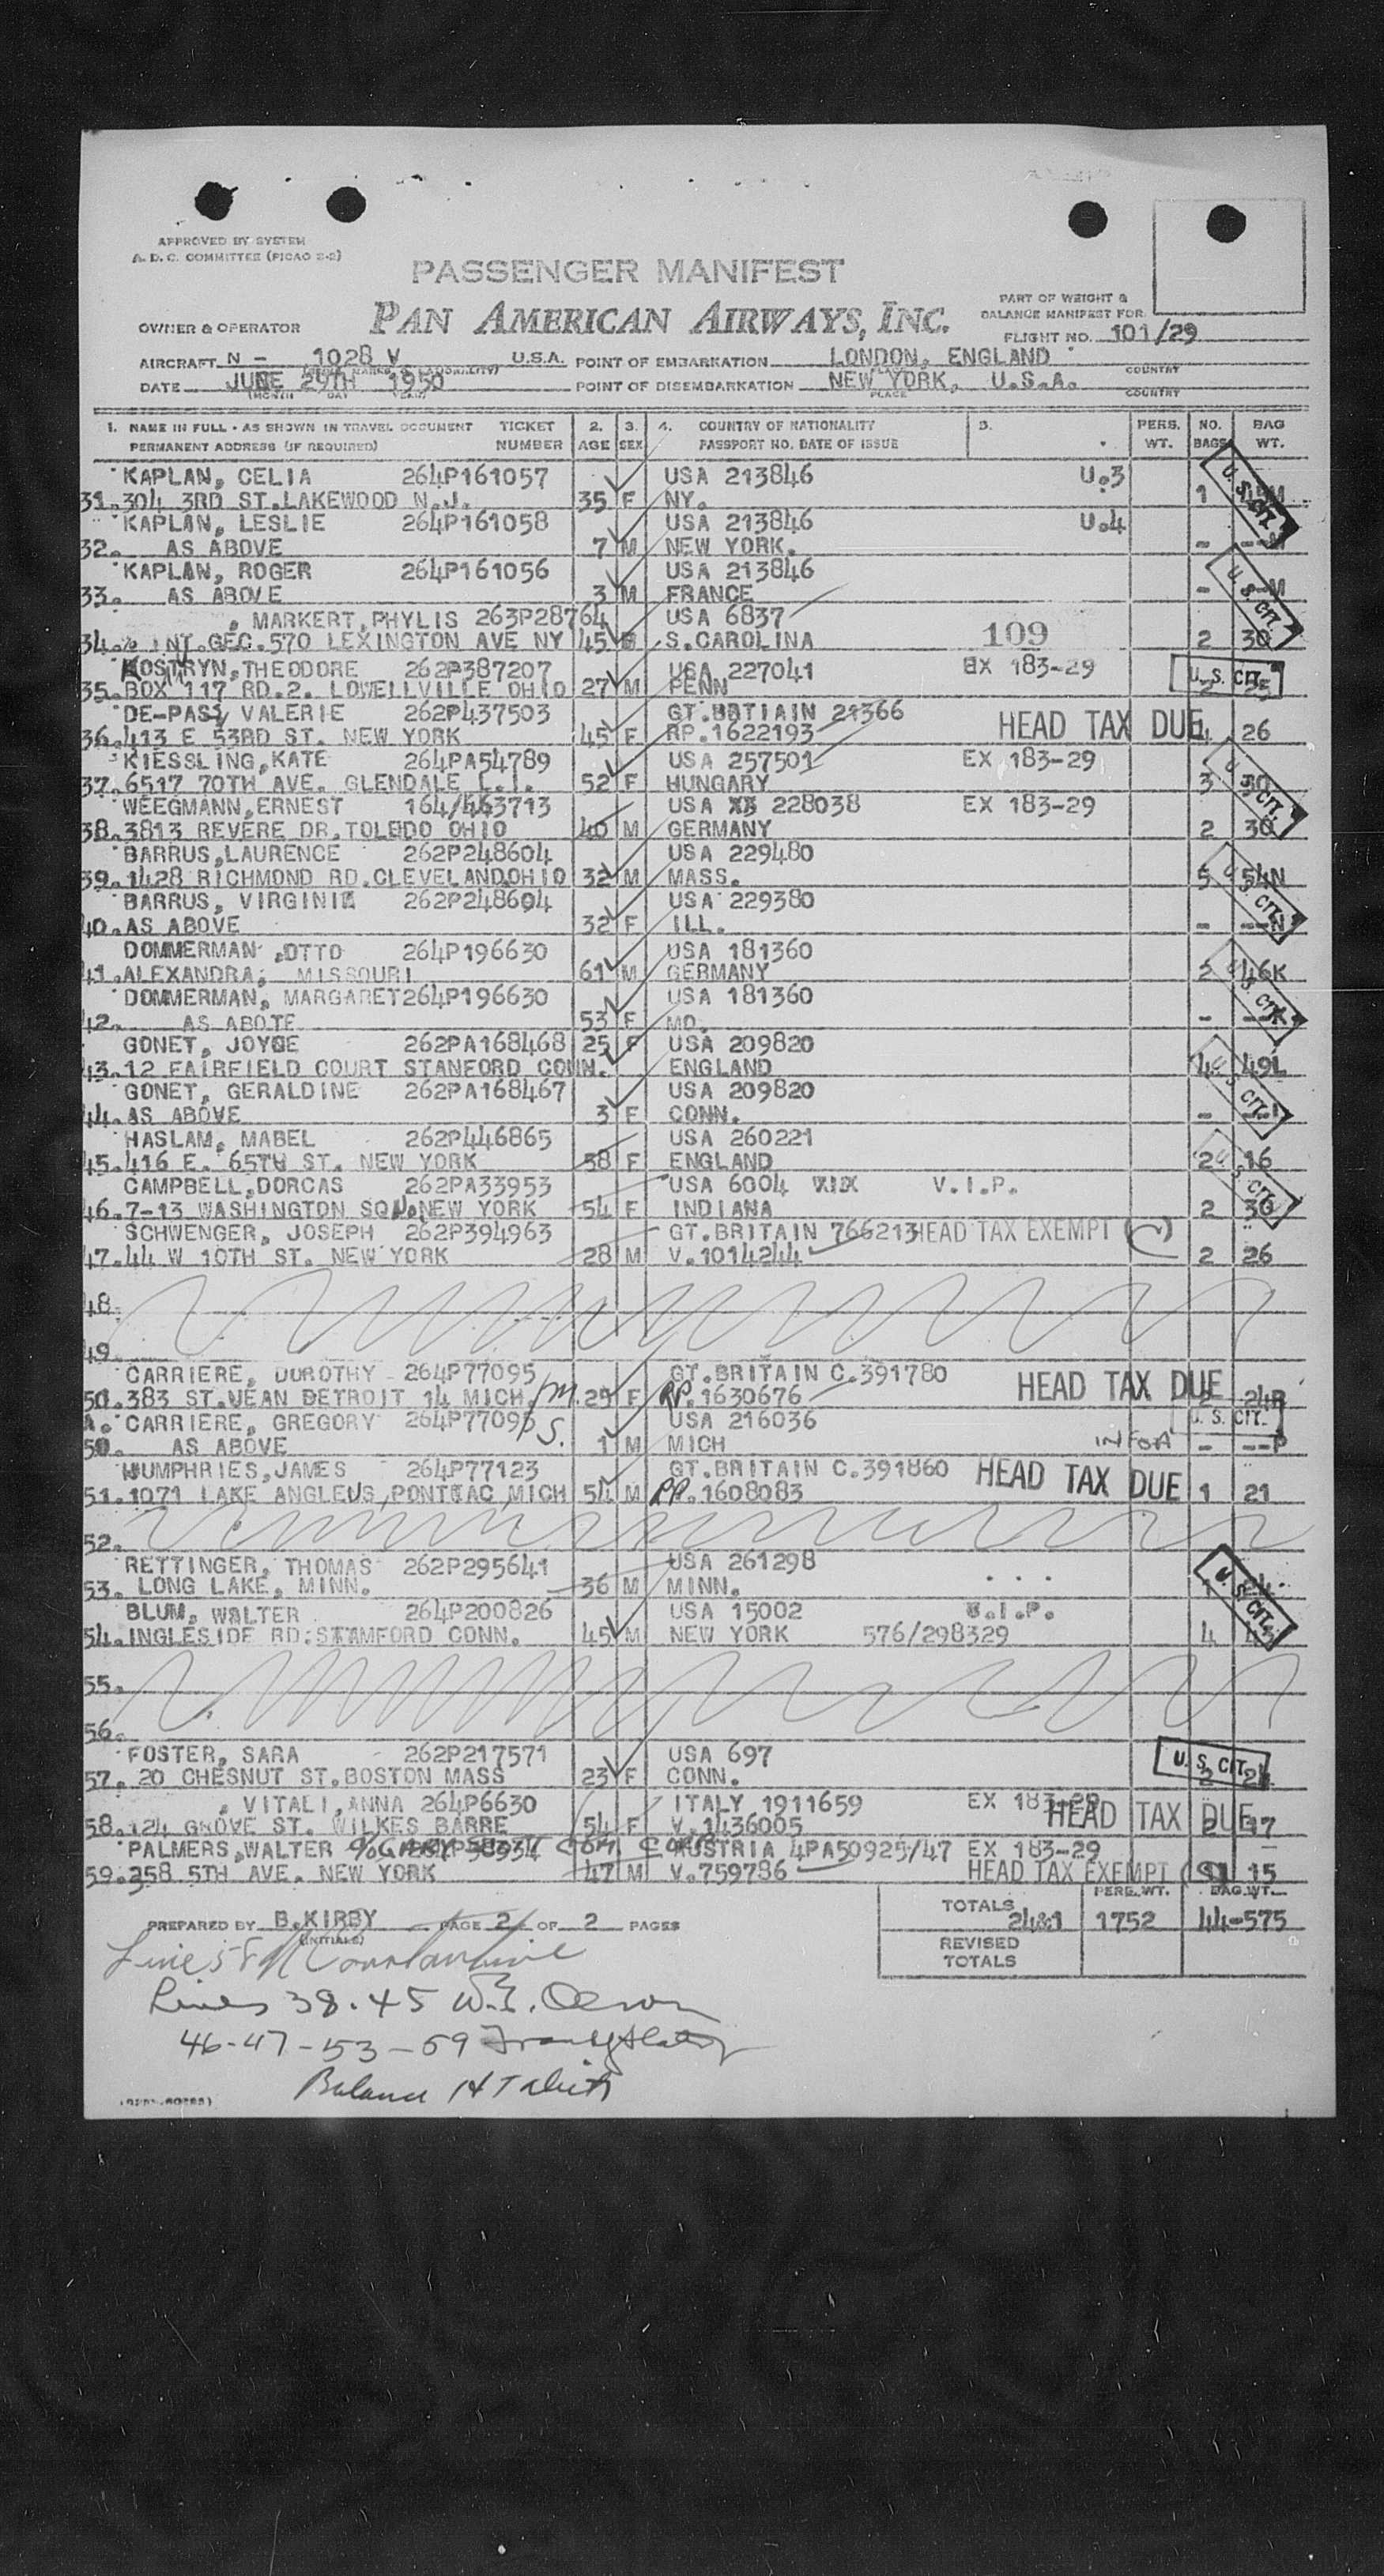 APPROVED BY SYSTEM
A. D. C. COMMITTEE (PICAO 2-2)
PASSENGER MANIFEST
PAN AMERICAN AIRWAYS, INC.
PART OF WEIGHT &
BALANCE MANIFEST FOR
OWNER & OPERATOR
FLIGHT NO. 101/29
AIRCRAFT N - 1028 V U.S.A. POINT OF EMBARKATION LONDON, ENGLAND
COUNTRY
DATE JUNE 29TH 1950 POINT OF DISEMBARKATION NEW YORK, U.S.A.
(MONTH DAY YEAR) PLACE COUNTRY
1. NAME IN FULL - AS SHOWN IN TRAVEL DOCUMENT TICKET 2. 3. 4. COUNTRY OF NATIONALITY 5. PERS. NO. BAG
PERMANENT ADDRESS (IF REQUIRED) NUMBER AGE SEX PASSPORT NO. DATE OF ISSUE WT. BAGS WT.
KAPLAN, CELIA 264P161057 USA 213846 U.3
31. 304 3RD ST. LAKEWOOD N.J. 35 F NY. 1 U.S. CIT.
KAPLAN, LESLIE 264P161058 USA 213846 U.4
32. AS ABOVE 7 M NEW YORK. - --M
KAPLAN, ROGER 264P161056 USA 213846
33. AS ABOVE 3 M FRANCE - --M U.S. CIT.
, MARKERT, PHYLIS 263P28764 USA 6837
34. % INT.GEC. 570 LEXINGTON AVE NY 45 S.CAROLINA 109 2 30
KOSTRYN, THEODORE 262P387207 USA 227041 EX 183-29
35. BOX 117 RD.2. LOWELLVILLE OHIO 27 M PENN U.S. CIT.
DE-PASS, VALERIE 262P437503 GT.BRTIAIN 21366
36. 413 E 53RD ST. NEW YORK 45 F RP.1622193 HEAD TAX DUE 26
KIESSLING, KATE 264PA54789 USA 257501 EX 183-29
37. 6517 70TH AVE. GLENDALE L.I. 52 F HUNGARY 3 U.S. CIT.
WEEGMANN, ERNEST USA XX 228038 EX 183-29
38. 3813 REVERE DR. TOLEDO OHIO 40 M GERMANY 2 30
BARRUS, LAURENCE 262P248604 USA 229480
39. 1428 RICHMOND RD. CLEVELAND.OHIO 32 M MASS. 5 54N
BARRUS, VIRGINIE 262P248604 USA 229380 U.S. CIT.
40. AS ABOVE 32 F ILL. - --N
DOMMERMAN ,OTTO 264P196630 USA 181360
41. ALEXANDRA, MISSOURI 61 M GERMANY 2 46K
DOMMERMAN, MARGARET 264P196630 USA 181360 U.S. CIT.
42. AS ABOTE 53 F MO. - --K
GONET, JOYCE 262PA168468 25 F USA 209820
43. 12 FAIRFIELD COURT STANFORD CONN. ENGLAND 4 49L
GONET, GERALDINE 262PA168467 USA 209820 U.S. CIT.
44. AS ABOVE 3 F CONN. -
HASLAM, MABEL 262P446865 USA 260221
45. 416 E. 65TH ST. NEW YORK 58 F ENGLAND 2 16
CAMPBELL, DORCAS 262PA33953 USA 6004 V.I.P. U.S. CIT.
46. 7-13 WASHINGTON SQ.N. NEW YORK 54 F INDIANA 2 30
SCHWENGER, JOSEPH 262P394963 GT.BRITAIN 766213 HEAD TAX EXEMPT
47. 44 W 10TH ST. NEW YORK 28 M V.1014244 2 26
48.
49.
CARRIERE, DOROTHY - 264P77095 GT.BRITAIN C.391780
50. 383 ST.JEAN DETROIT 14 MICH. 25 F PP.1630676 HEAD TAX DUE 2 24P
A. CARRIERE, GREGORY 264P77095 USA 216036 U.S. CIT.
50. AS ABOVE 1 M MICH - --P
HUMPHRIES, JAMES 264P77123 GT.BRITAIN C.391860
51. 1071 LAKE ANGLEUS, PONTIAC MICH 54 M PP.1608083 HEAD TAX DUE 1 21
52.
RETTINGER, THOMAS 262P295641 USA 261298
53. LONG LAKE, MINN. 36 M MINN. U.S. CIT.
BLUM, WALTER 264P200826 USA 15002 V.I.P.
54. INGLESIDE RD: STAMFORD CONN. 45 M NEW YORK 576/298329 4
55.
56.
FOSTER, SARA 262P217571 USA 697
57. 20 CHESNUT ST. BOSTON MASS 23 F CONN. U.S. CIT.
, VITALI, ANNA 264P6630 ITALY 1911659 EX 183-29
58. 124 GROVE ST. WILKES BARRE 54 F V.1436005 HEAD TAX DUE 2 17
PALMERS, WALTER AUSTRIA 4PA50925/47 EX 183-29
59. 358 5TH AVE. NEW YORK 47 M V.759786 HEAD TAX EXEMPT 15
PERS. WT. BAG WT.
TOTALS 24&1 1752 44-575
PREPARED BY B.KIRBY PAGE 2 OF 2 PAGES
(INITIALS)
REVISED
TOTALS
Line 58
Lines 38.45 W.E. Olson
46-47-53-59
Balance